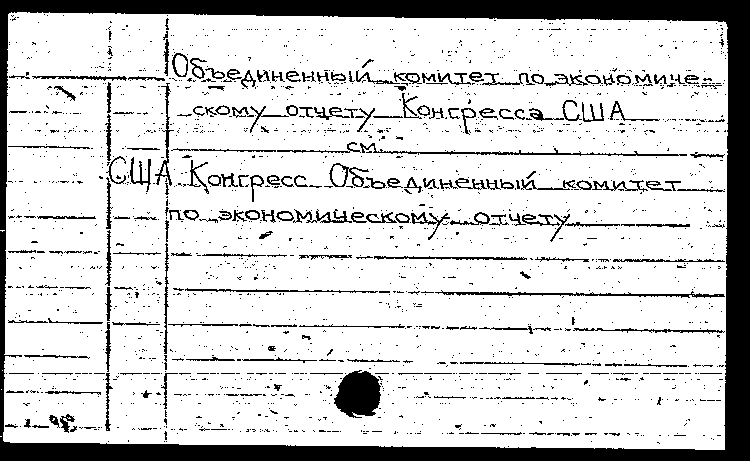 Объединенный комитет по экономиче-
скому отчету Конгресса США
см.
США Конгресс Объединенный комитет
по экономическому отчету